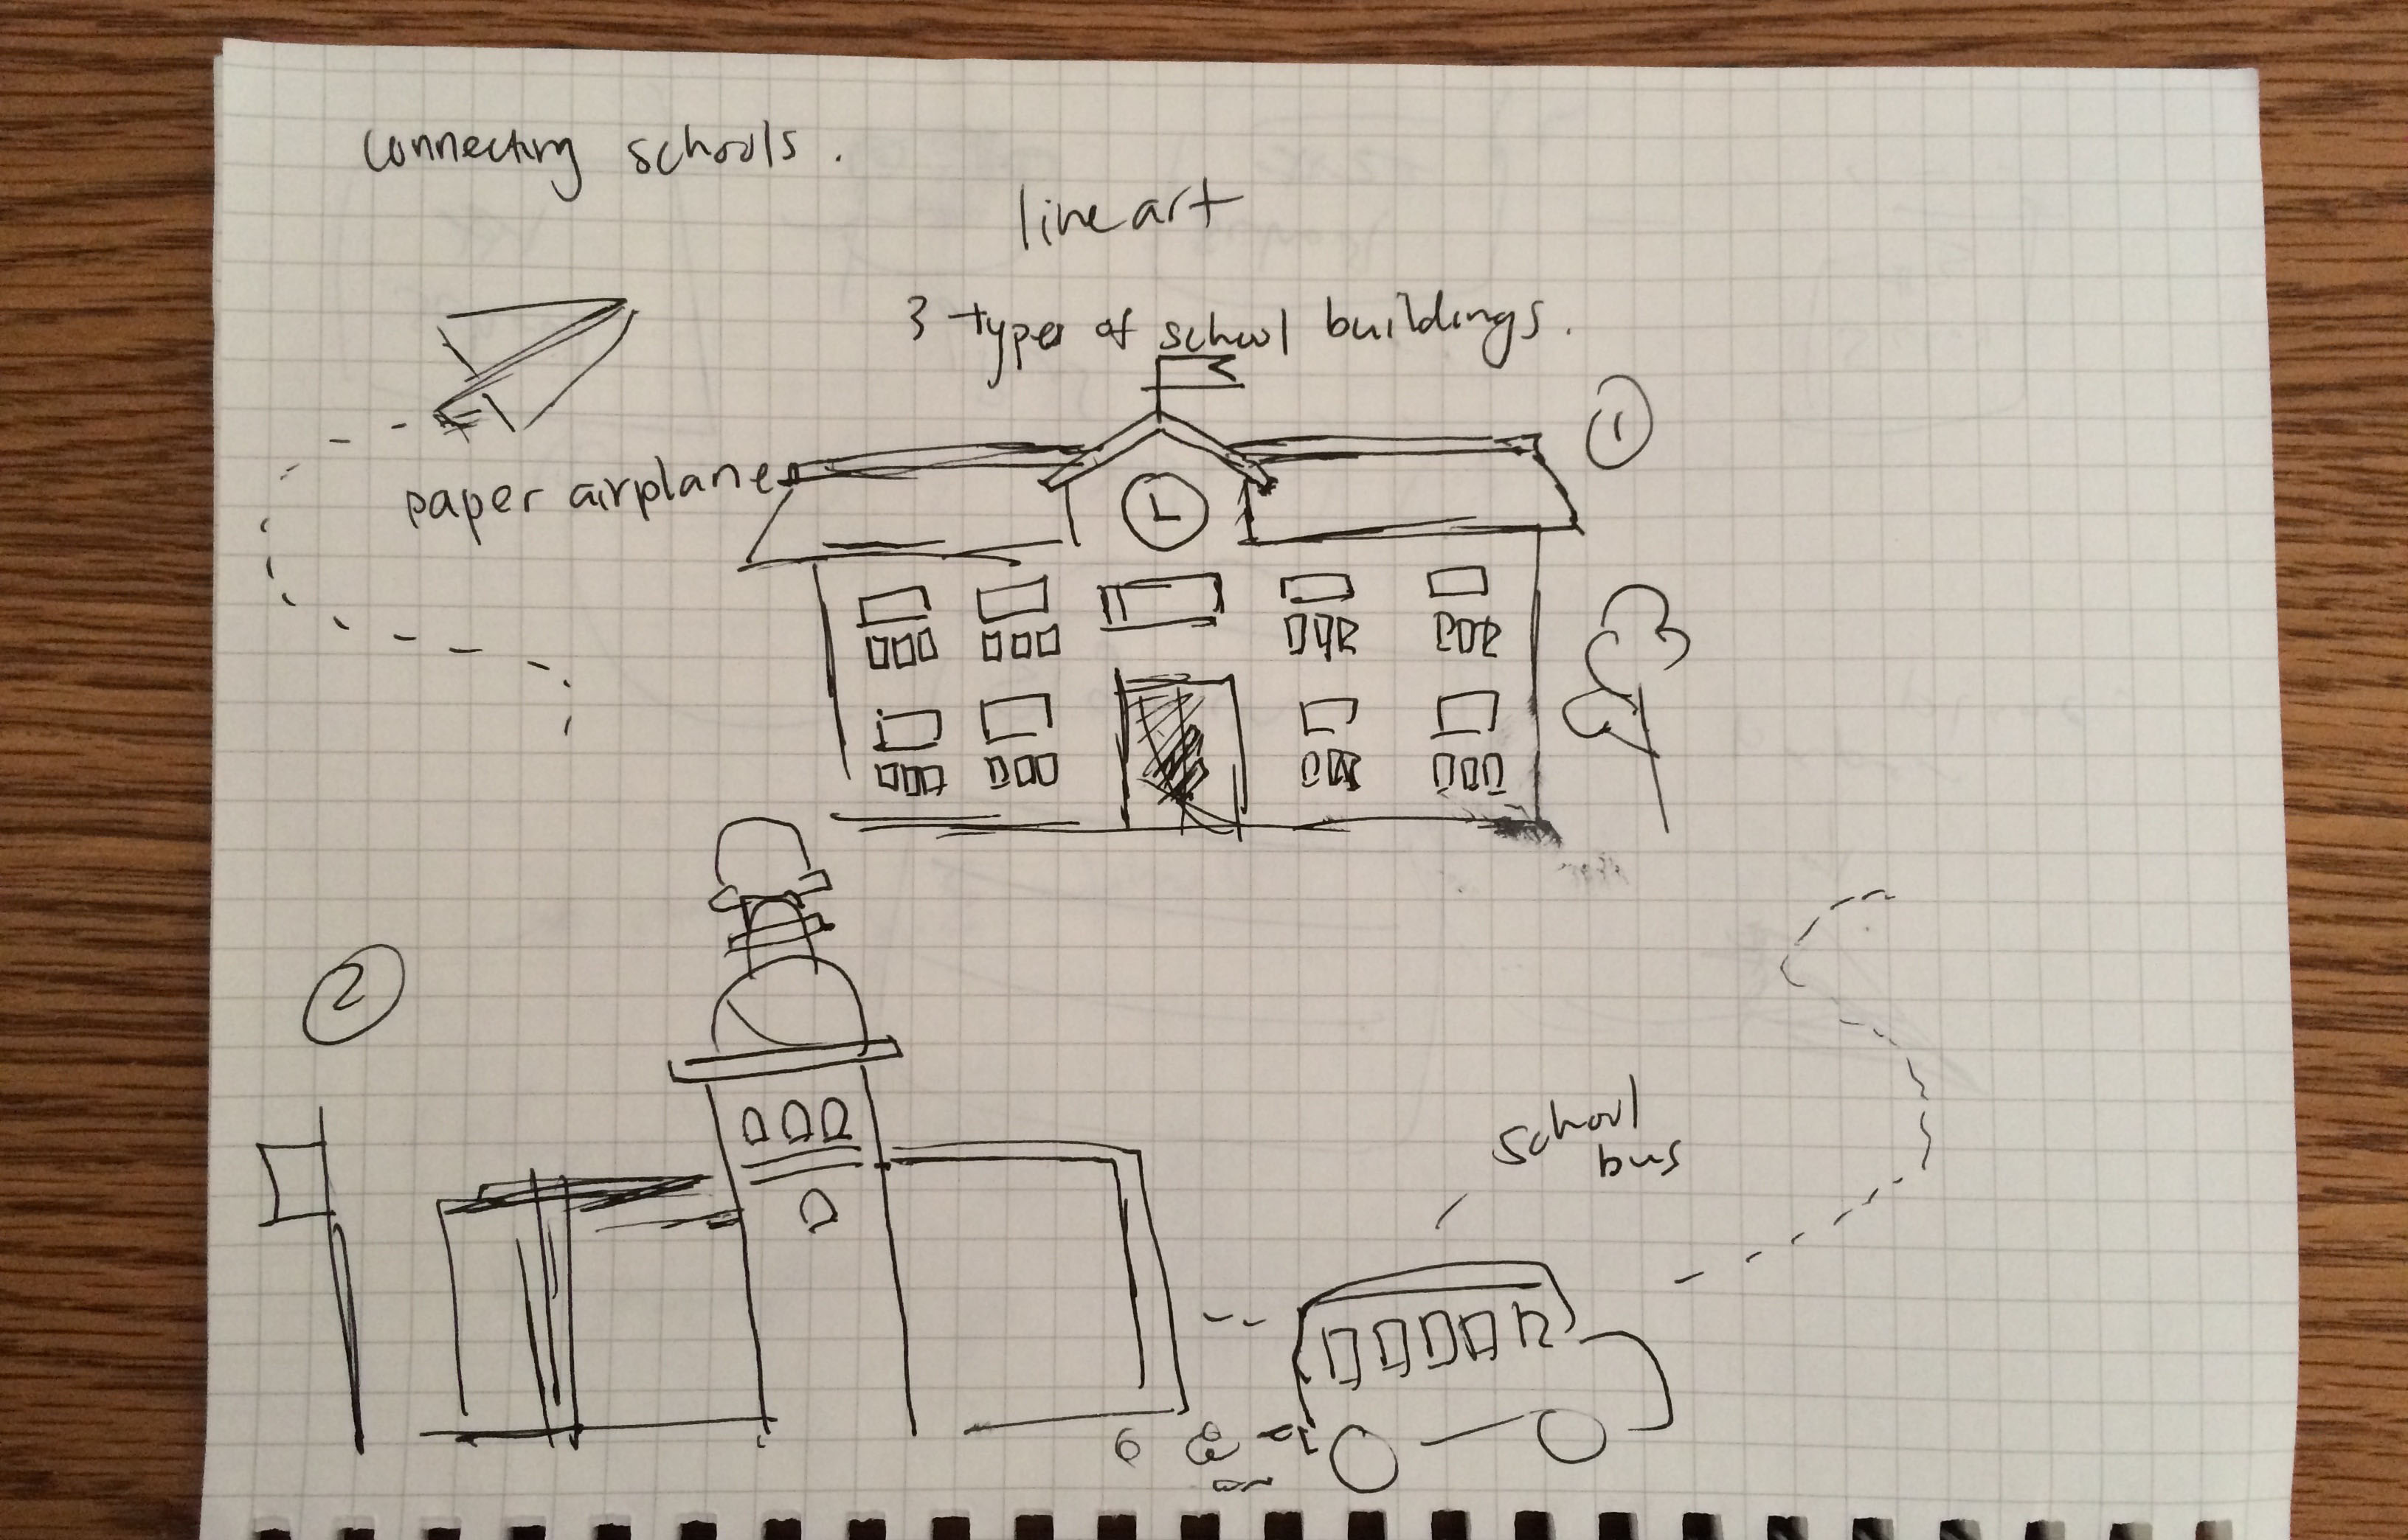 connecting schools.
line art
3 types of school buildings.
1
paper airplane
2
school
bus